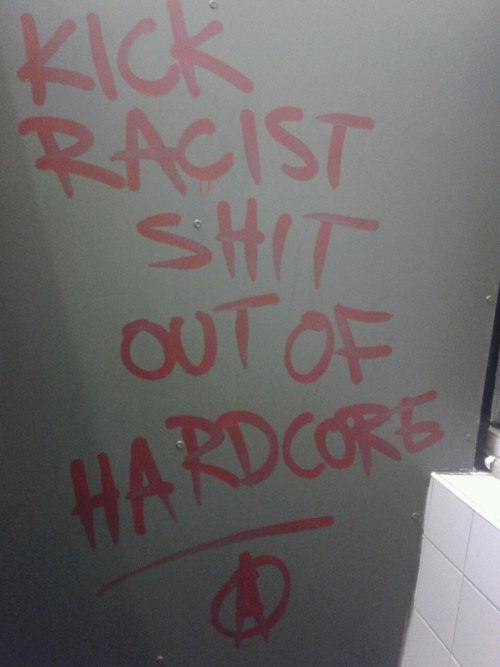 KICK
RACIST
SHIT
OUT OF
HARDCORE
Ⓐ